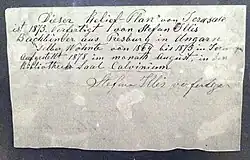 Dieser Relief-Plan von Jerusalem
ist 1873 verfertigt von Stefan Illés
Buchbinder aus Presburg in Ungarn
Selber Wohnte von 1864 bis 1873 in Jeru
aufgestellt 1878 im monath August in den
Bibliothek Saal Calvinium
Stefan Illés verfertiger